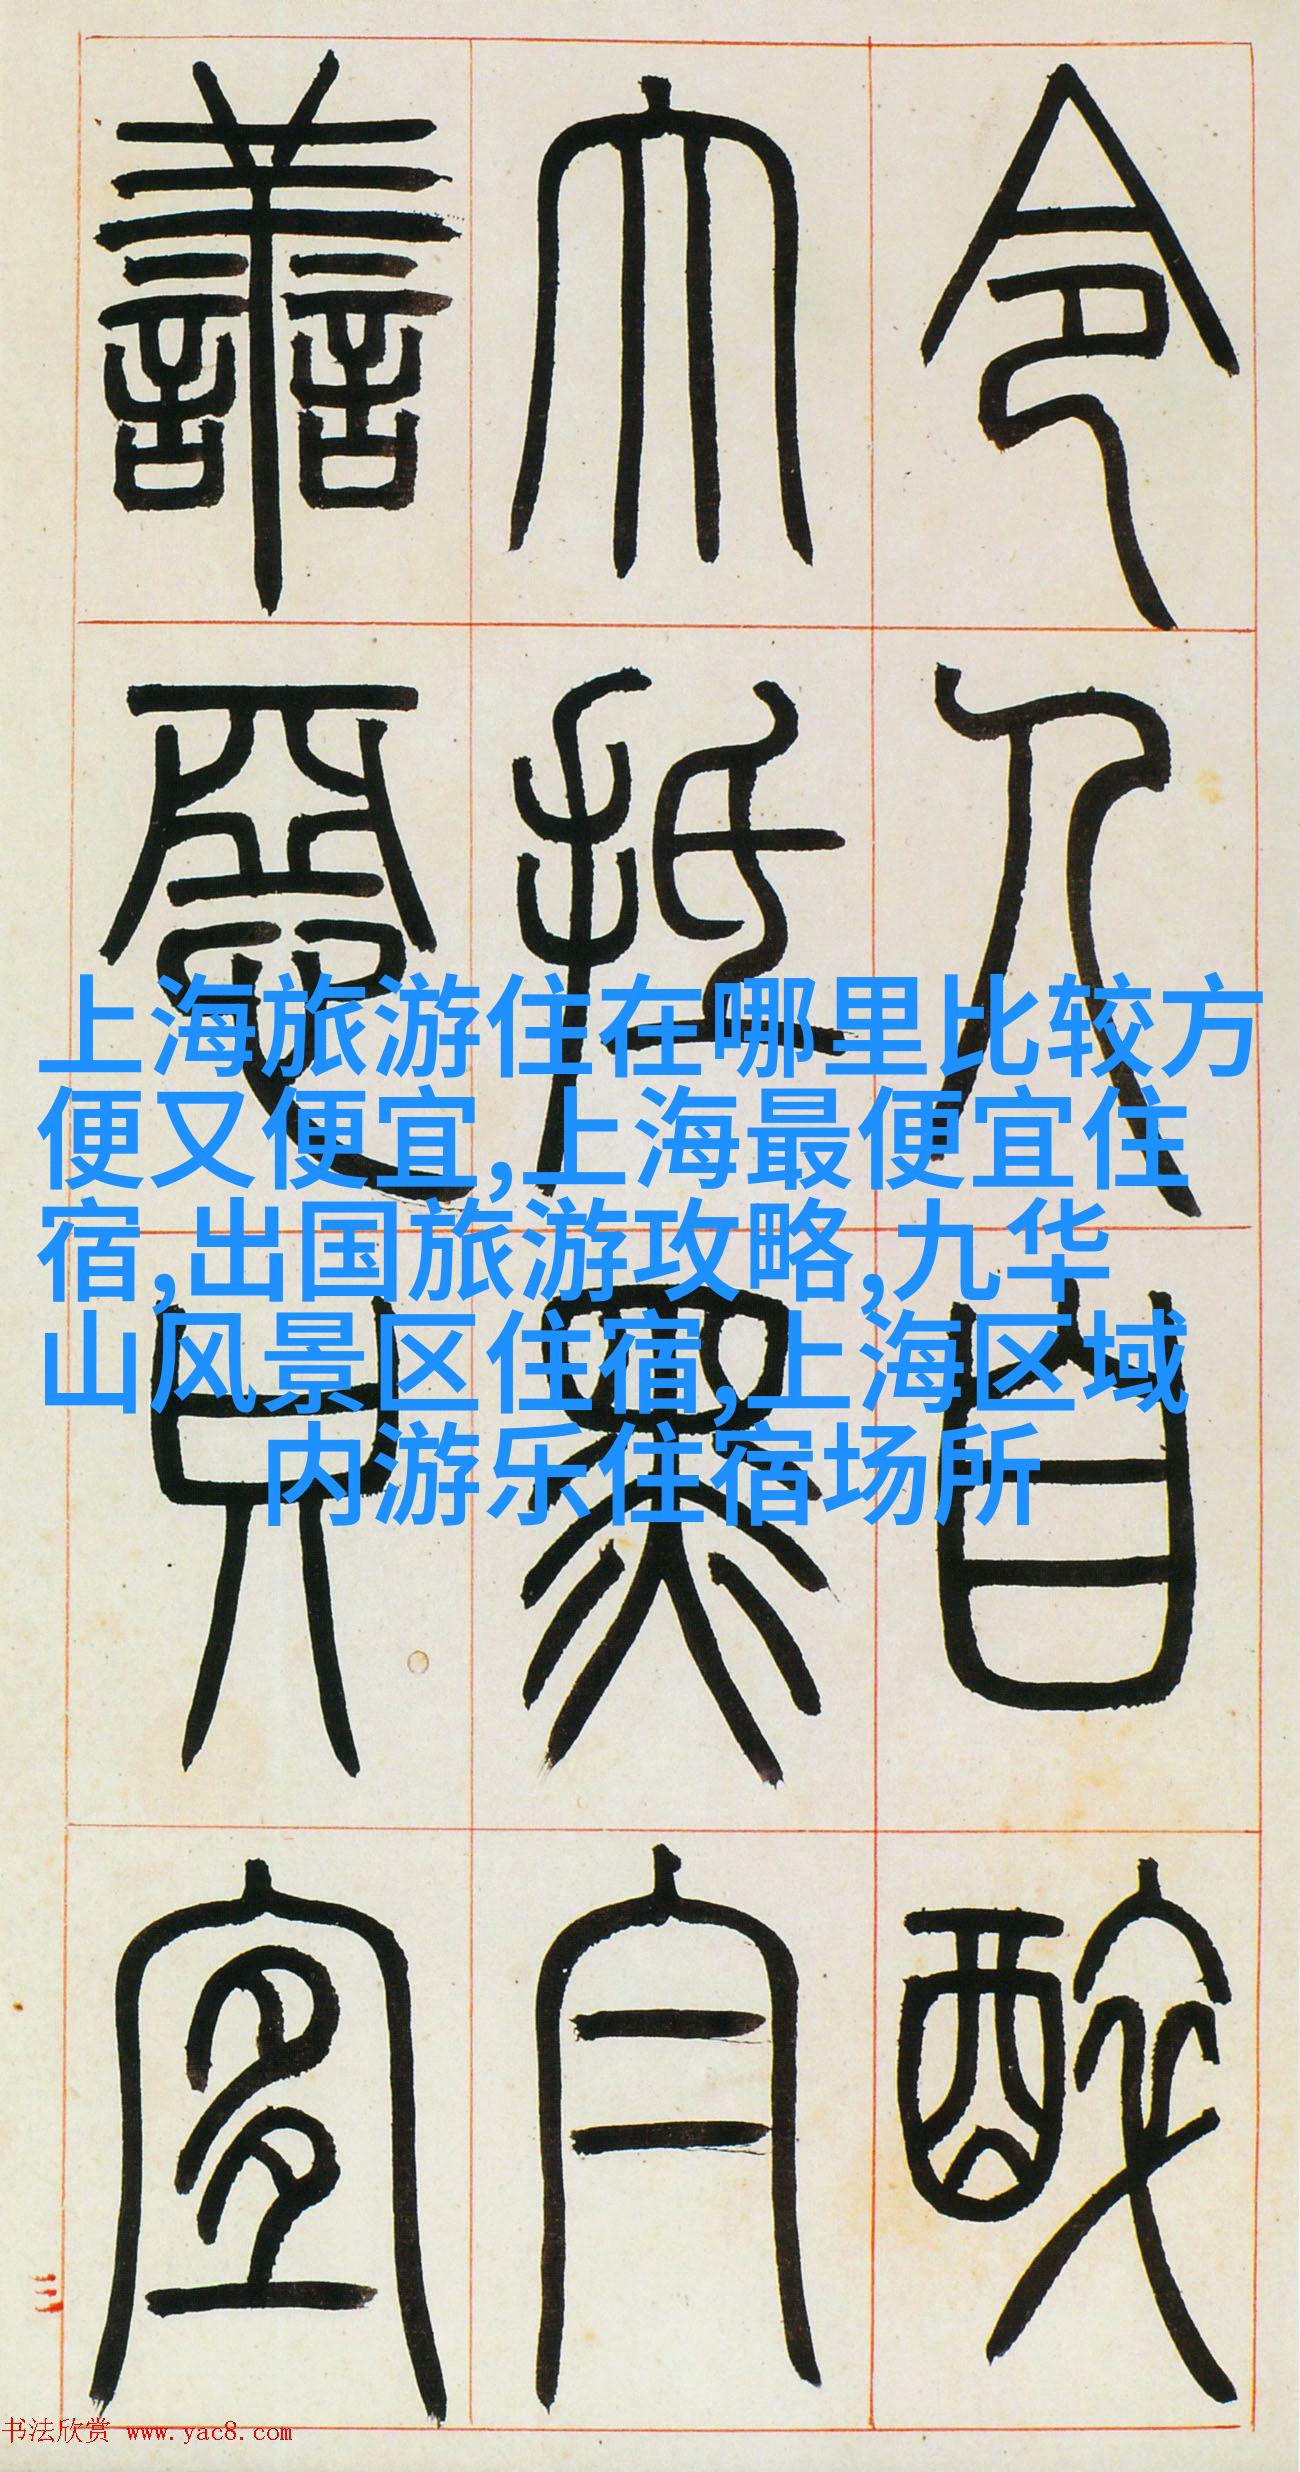 上海旅游住在哪里比较方
便又便宜,上海最便宜住
宿,出国旅游攻略,九华
山风景区住宿,上海区域
内游乐住宿场所
令人自醉
大抵
善惡宜
三
书法欣赏 www.yac8.com